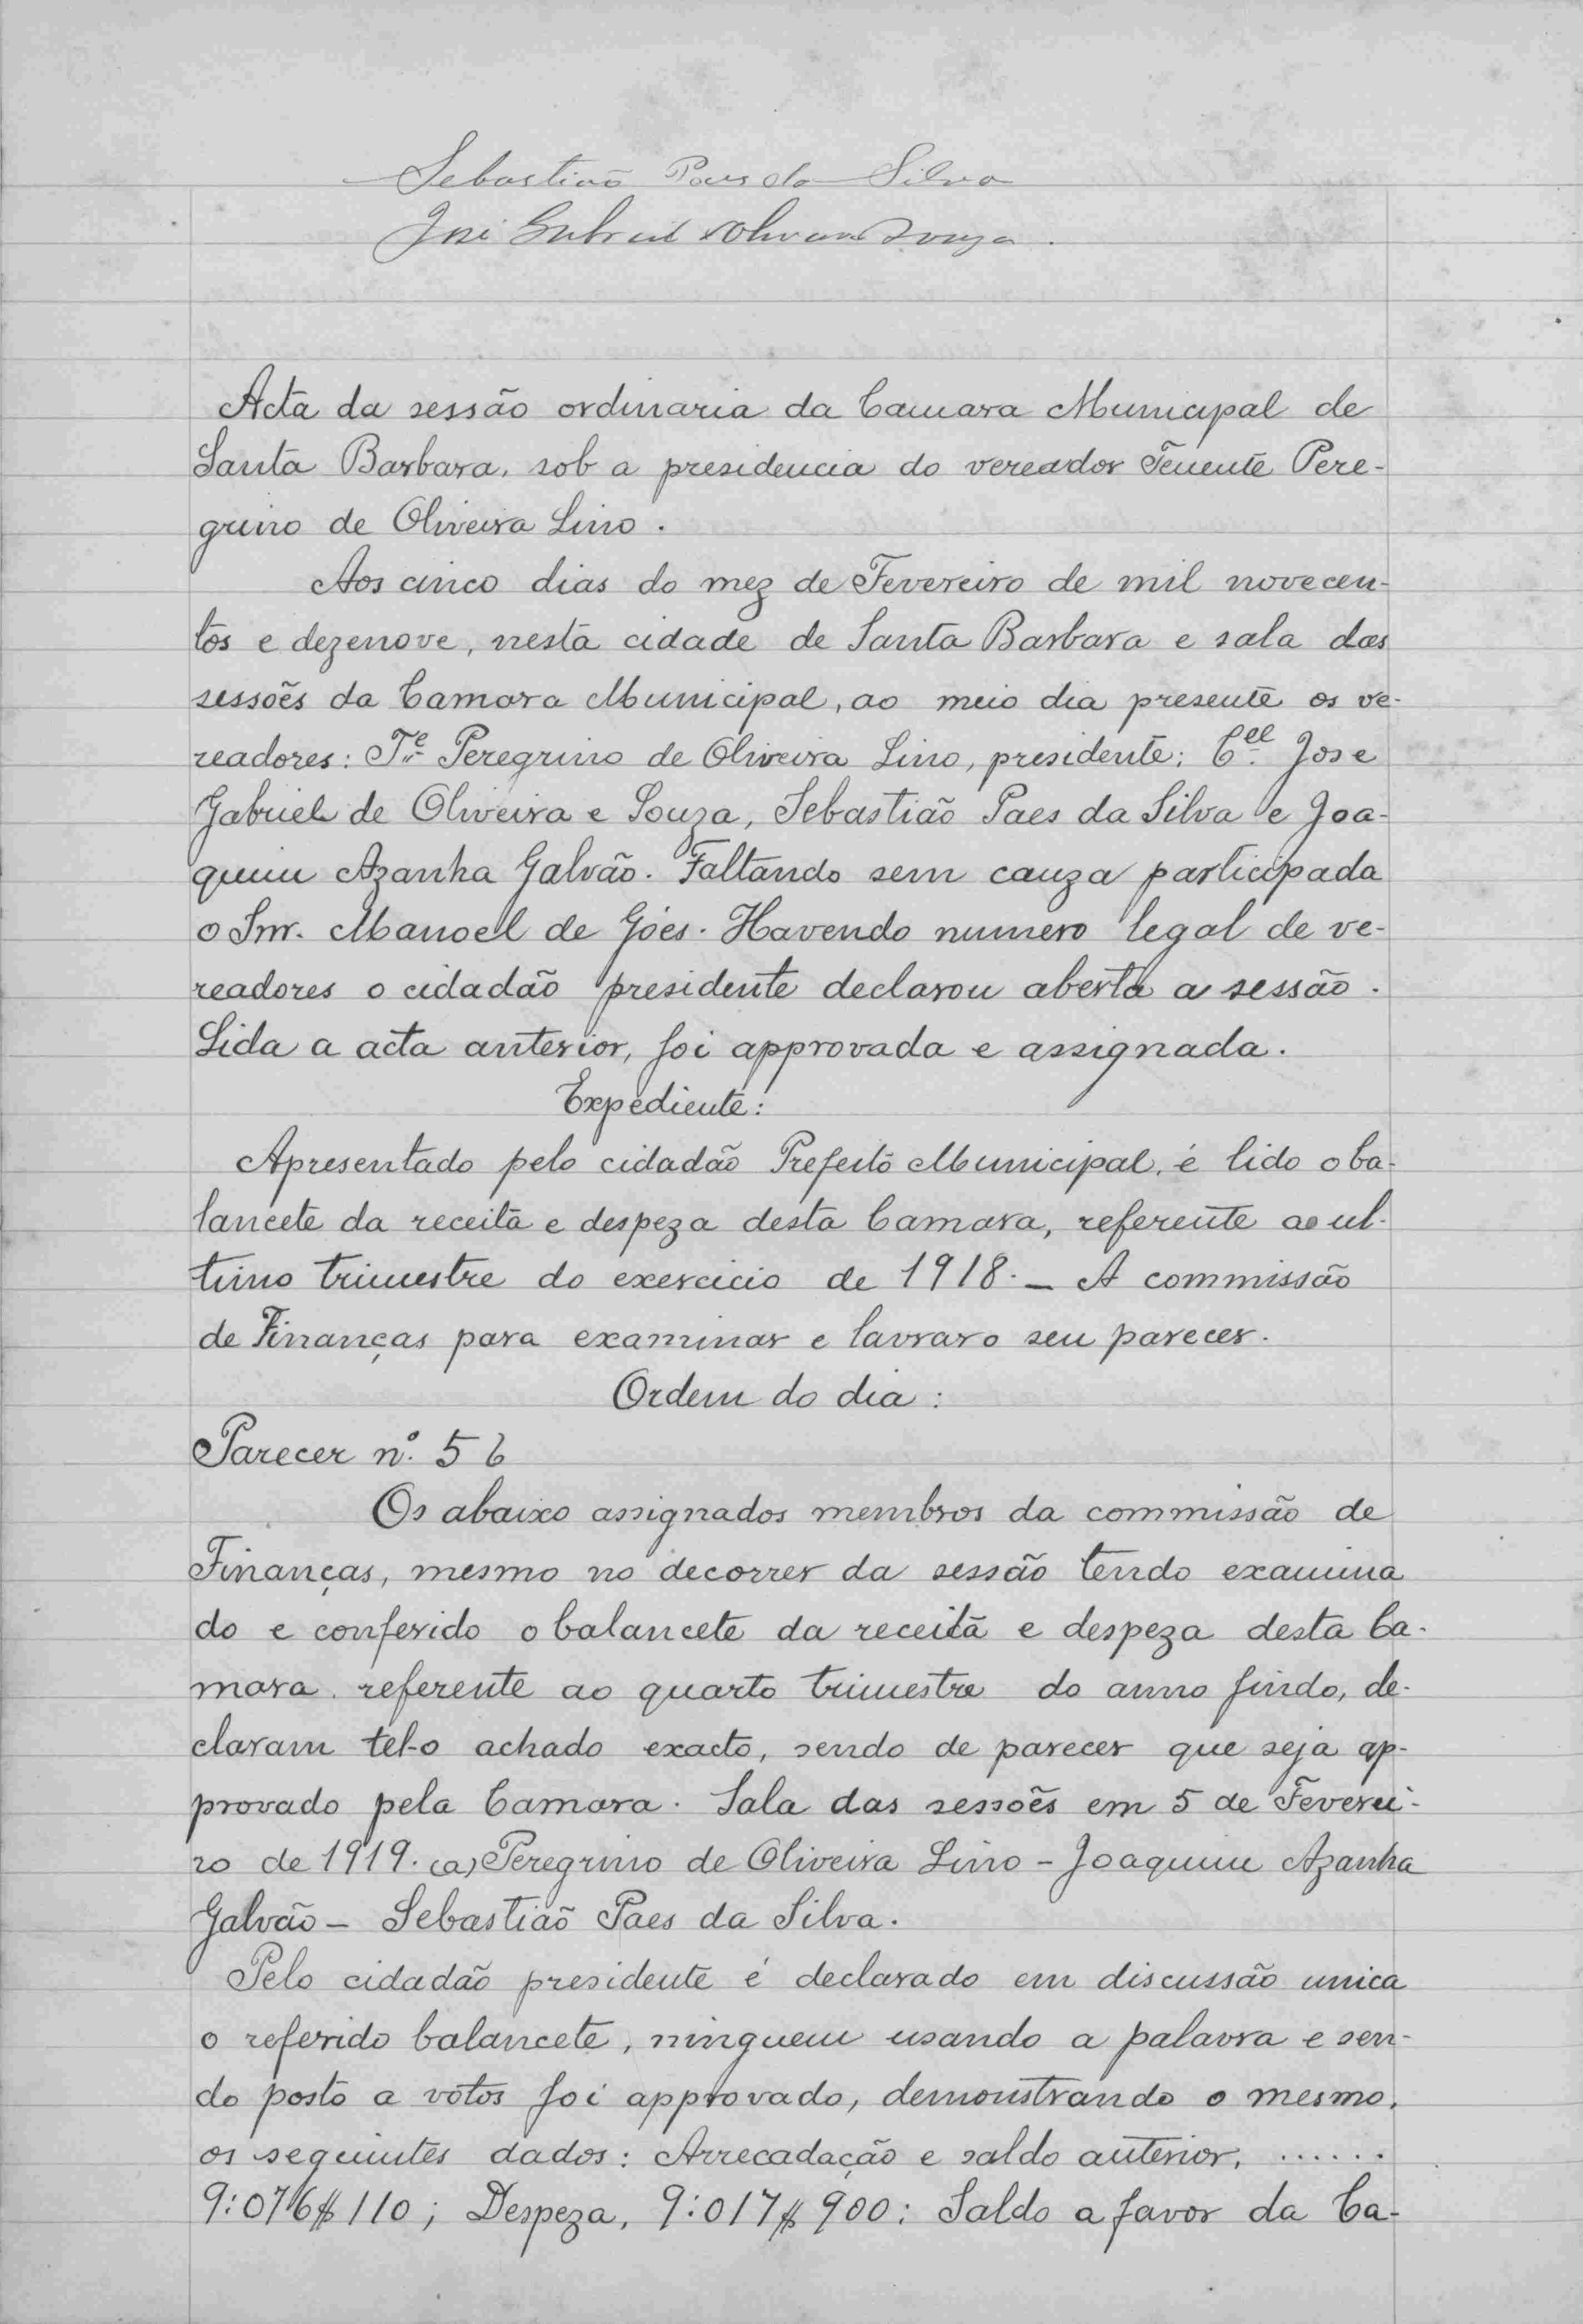 Sebastião Paes da Silva
José Gabriel d'Oliveira Souza.
Acta da sessão ordinaria da Camara Municipal de
Santa Barbara, sob a presidencia do vereador Tenente Pere-
grino de Oliveira Lino.
Aos cinco dias do mez de Fevereiro de mil novecen-
tos e dezenove, nesta cidade de Santa Barbara e sala das
sessões da Camara Municipal, ao meio dia presente os ve-
readores: Te Peregrino de Oliveira Lino, presidente; Cel. Jose
Gabriel de Oliveira e Souza, Sebastião Paes da Silva e Joa-
quim Azanha Galvão. Faltando sem cauza participada
o Snr. Manoel de Góes. Havendo numero legal de ve-
readores o cidadão presidente declarou aberta a sessão.
Lida a acta anterior, foi approvada e assignada.
Expediente:
Apresentado pelo cidadão Prefeito Municipal, é lido o ba-
lancete da receita e despeza desta Camara, referente ao ul-
timo trimestre do exercicio de 1918. — A commissão
de Finanças para examinar e lavrar o seu parecer.
Ordem do dia:
Parecer nº. 56
Os abaixo assignados membros da commissão de
Finanças, mesmo no decorrer da sessão tendo examina
do e conferido o balancete da receita e despeza desta Ca-
mara referente ao quarto trimestre do anno findo, de-
claram tel-o achado exacto, sendo de parecer que seja ap-
provado pela Camara. Sala das sessões em 5 de Feverei-
ro de 1919. (a) Peregrino de Oliveira Lino - Joaquim Azanha
Galvão - Sebastião Paes da Silva.
Pelo cidadão presidente é declarado em discussão unica
o referido balancete, ninguem usando a palavra e sen-
do posto a votos foi approvado, demonstrando o mesmo,
os seguintes dados: Arrecadação e saldo anterior, ......
9:076$110; Despeza, 9:017$900: Saldo a favor da Ca-